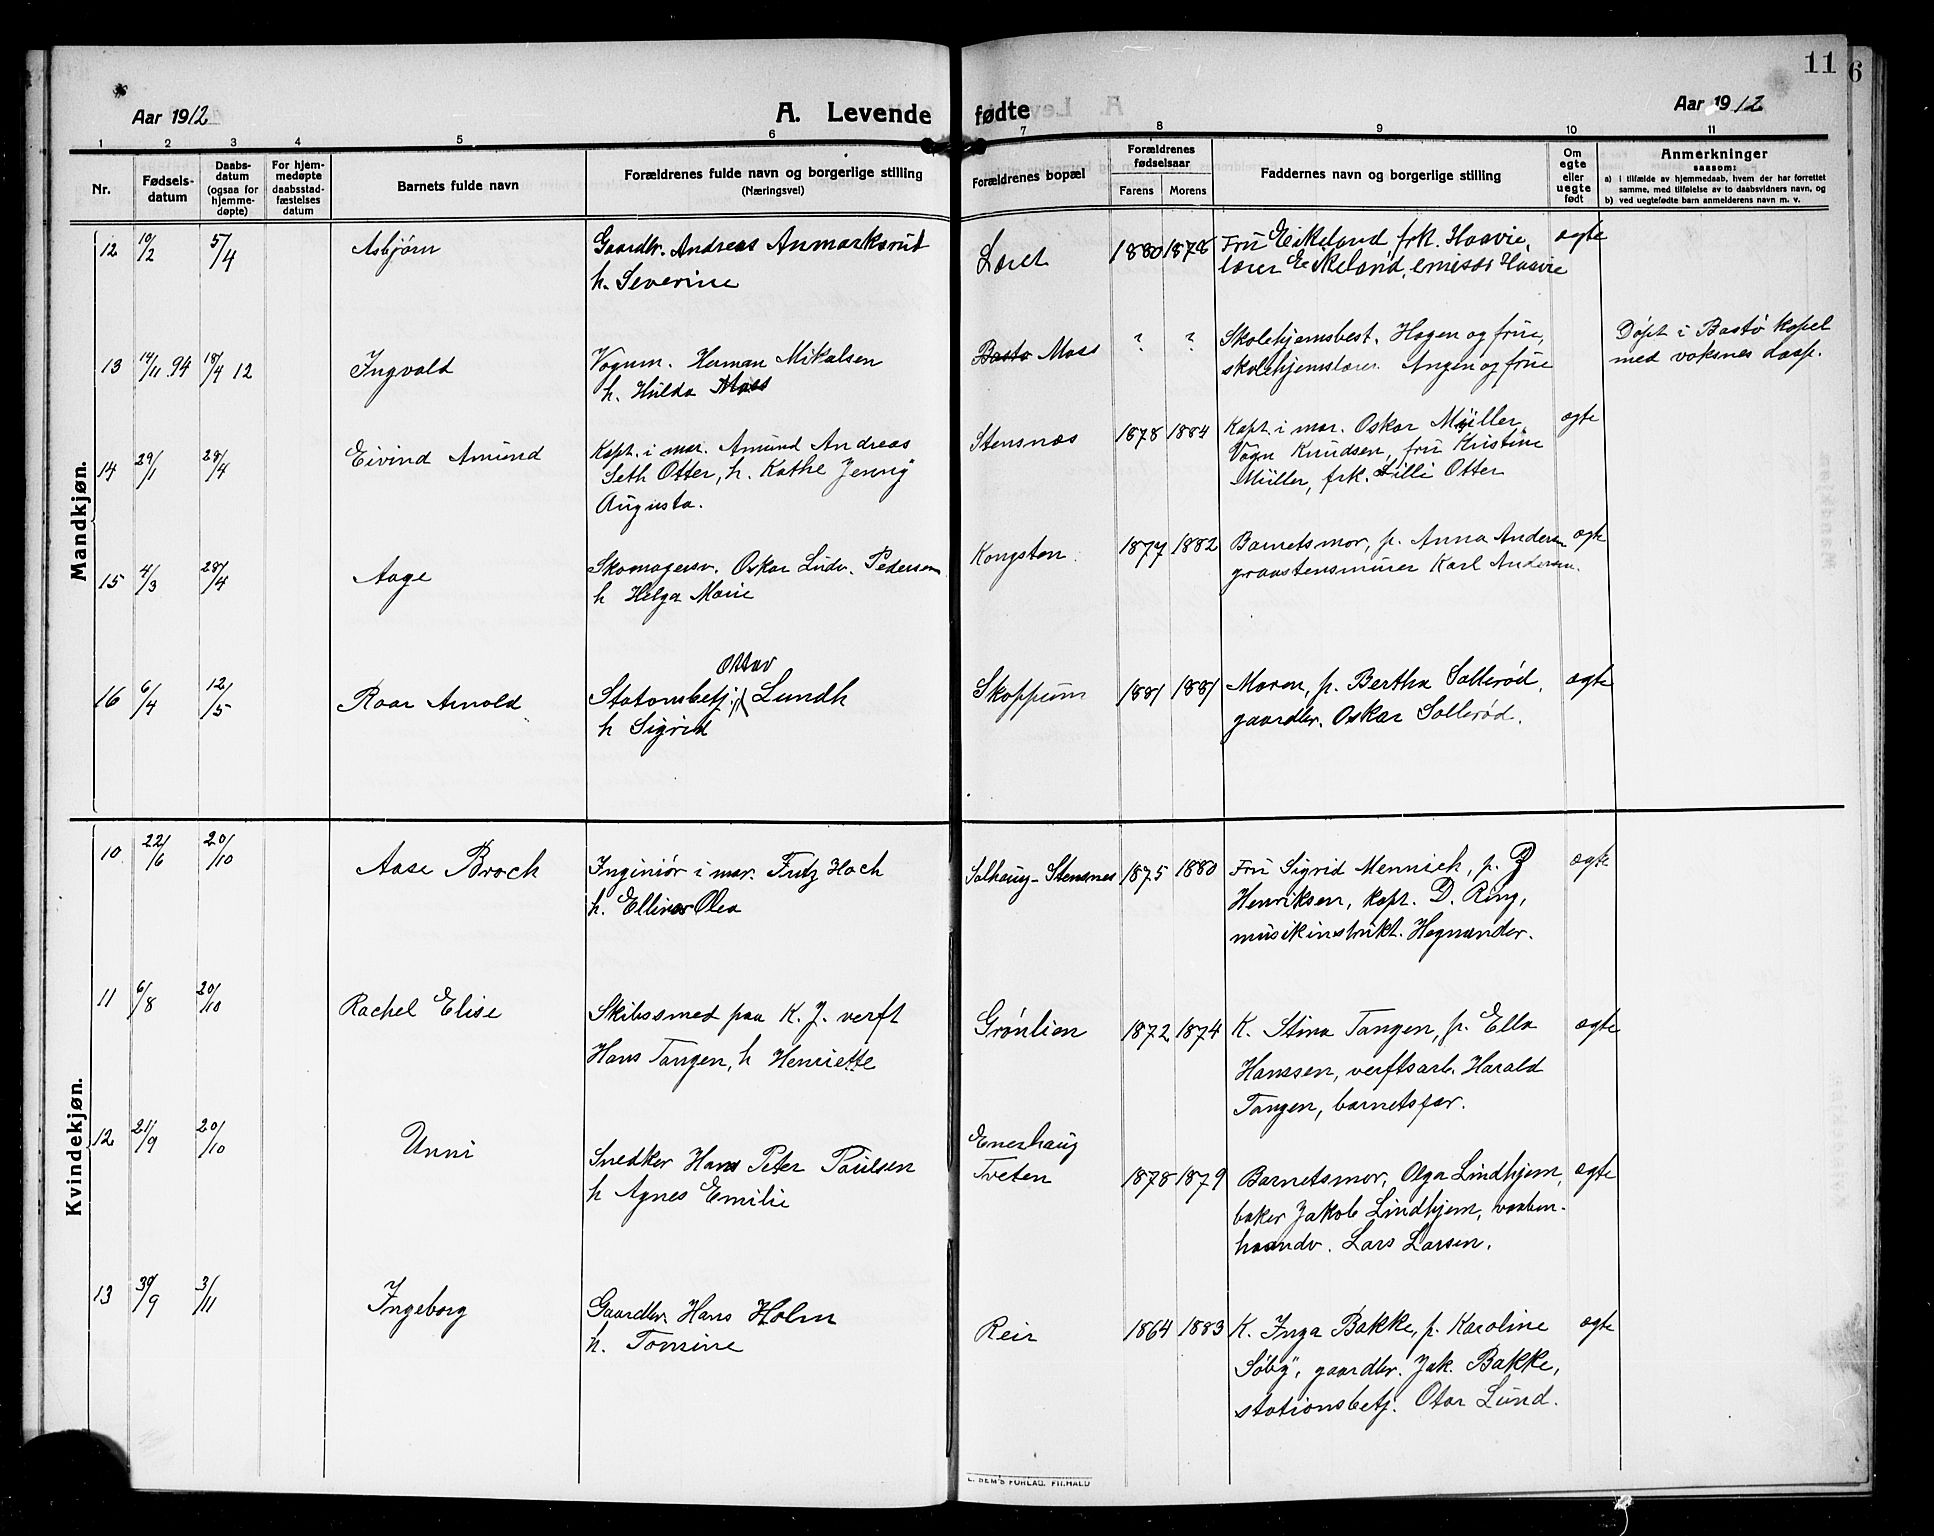 11
6
Aar 1912
A. Levende
fødte
Aar 1912
1 2 3 4 5 6 7 8 9 10 11
Nr.
Fødsels-
datum
Daabs-
datum
(ogsaa for
hjemme-
døpte)
For hjem-
medøpte
daabsstad-
fæstelses
datum
Barnets fulde navn
Forældrenes fulde navn og borgerlige stilling
(Næringsvei)
Forældrenes bopæl
Forældrenes
fødselsaar
Farens Morens
Faddernes navn og borgerlige stilling
Om
egte
eller
uegte
født
Anmerkninger
saasom:
a) i tilfælde av hjemmedaab, hvem der har forrettet
samme, med tilføielse av to daabsvidners navn, og
b) ved uegtefødte barn anmelderens navn m. v.
Mandkjøn.
12 10/2 5/4 Asbjørn
Gaardbr. Andreas Anmarksrud
h. Severine
1880 1878
Fru Eikeland frk. Haavie,
lærer Eikeland, emisær Haavie
ægte
13 14/11 94 18/4 12 Ingvald
Vognm. Herman Mikalsen
h. Hulda Moss
Bastø Moss
? ?
Skolehjemsbest. Hagen og frue,
skolehjemslærer Angen og frue
Døpt i Bastø kapel
med voksnes daap.
14 29/1 28/4 Eivind Amund
Kapt. i mar. Amund Andreas
Seth Otter, h. Kathe Jenny
Augusta.
Stensnæs
1878 1884
Kapt. i mar. Oskar Müller
Vagn Knudsen, fru Kristine
Müller, frk. Lilli Otter
ægte
15 4/3 28/4 Aage
Skomagersv. Oskar Ludv. Pedersen
h Helga Marie
Kongsten
1877 1882
Barnetsmor, p. Anna Andersen
graastensmurer Karl Andersen.
ægte
16 6/4 12/5 Roar Arnold
Ottar
Statonsbetj. Lundh
h Sigrid
Skoppum
1881 1881
Moren, p. Bertha Sollerød,
gaardbr. Oskar Sollerød.
ægte
Kvindekjøn.
10 22/6 20/10 Aase Broch
Inginiør i mar. Fritz Hoch
h. Ellinor Olea
Solhaug-Stensnes
1875 1880
Fru Sigrid Mennich, p.
Henriksen, kapt. D. Ring,
musikinstrukt. Hegnander.
ægte
11 6/8 20/10 Rachel Elise
Skibssmed paa K. J. verft
Hans Tangen, h Henriette
Grønlien
1872 1874
K. Stina Tangen, p. Ella
Hanssen, verftsarb. Harald
Tangen, barnetsfar.
ægte
12 21/9 20/10 Unni
Snedker Hans Peter Paulsen
h Agnes Emilie
Enerhaug
Tveten
1878 1879
Barnetsmor, Olga Lindhjem,
baker Jakob Lindhjem, vaaben-
haandv. Lars Larsen.
ægte
13 30/9 3/11 Ingeborg
Gaardbr. Hans Holm
h. Tomine
Reir
1864 1883
K. Inga Bakke, p. Karoline
Søby, gaardbr. Jak. Bakke,
stationsbetj. Otar Lund.
ægte
E. SEM'S FORLAG. FR.HALD